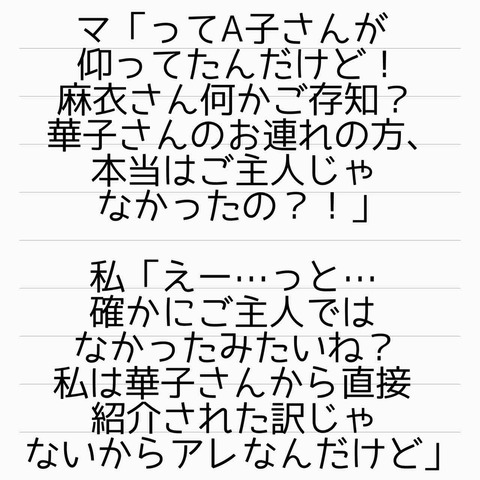 マ「ってA子さんが
仰ってたんだけど！
麻衣さん何かご存知？
華子さんのお連れの方、
本当はご主人じゃ
なかったの？！」
私「えー…っと…
確かにご主人では
なかったみたいね？
私は華子さんから直接
紹介された訳じゃ
ないからアレなんだけど」